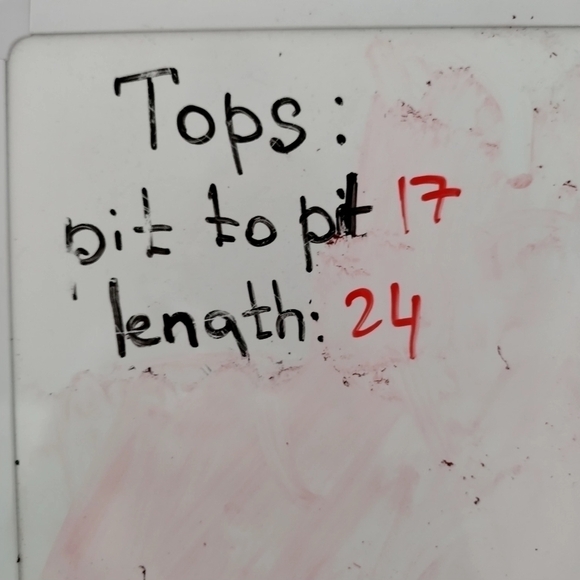 Tops:
pit to pit 17
length: 24